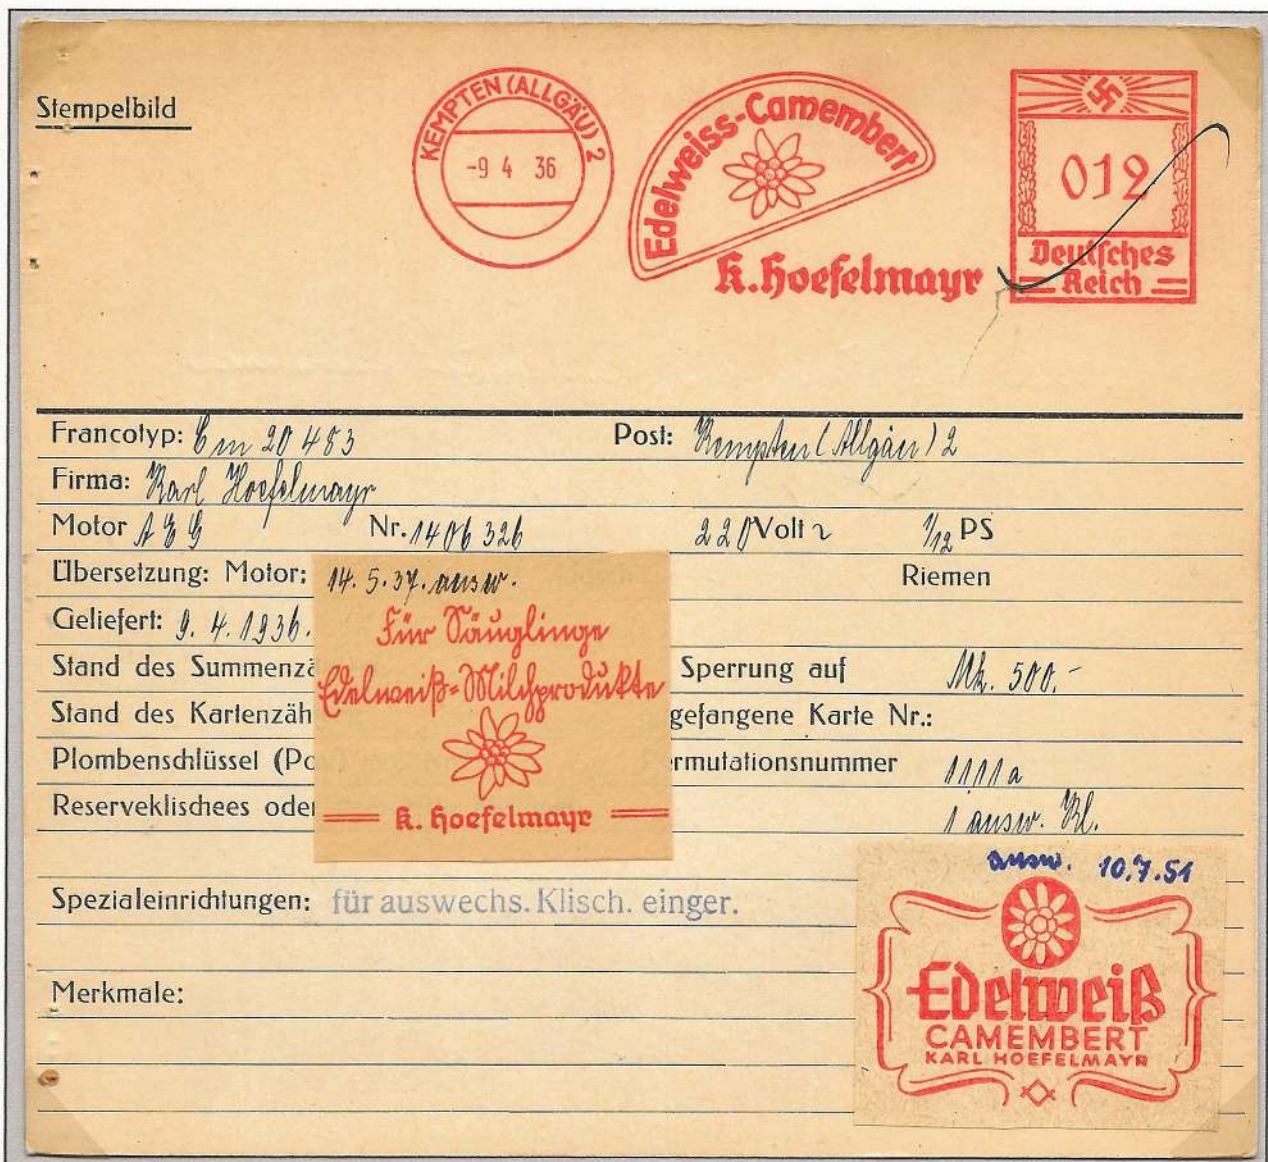 Stempelbild
KEMPTEN (ALLGÄU) 2
-9 4 36
Edelweiss-Camembert
K. Hoefelmayr
012
Deutsches
Reich
Francotyp: Cm 20483 Post: Kempten (Allgäu) 2
Firma: Karl Hoefelmayr
Motor AEG Nr. 1406326 220 Volt ~ 1/12 PS
Übersetzung: Motor: Riemen
Geliefert: 9. 4. 1936.
Stand des Summenzä Sperrung auf Mk. 500.-
Stand des Kartenzäh gefangene Karte Nr.:
Plombenschlüssel (Po ermutationsnummer 1111a
Reserveklischees oder 1 ausw. Kl.
14. 5. 37. ausw.
Für Säuglinge
Edelweiß-Milchprodukte
K. Hoefelmayr
Spezialeinrichtungen: für auswechs. Klisch. einger.
Merkmale:
ausw. 10.7.51
Edelweiß
CAMEMBERT
KARL HOEFELMAYR